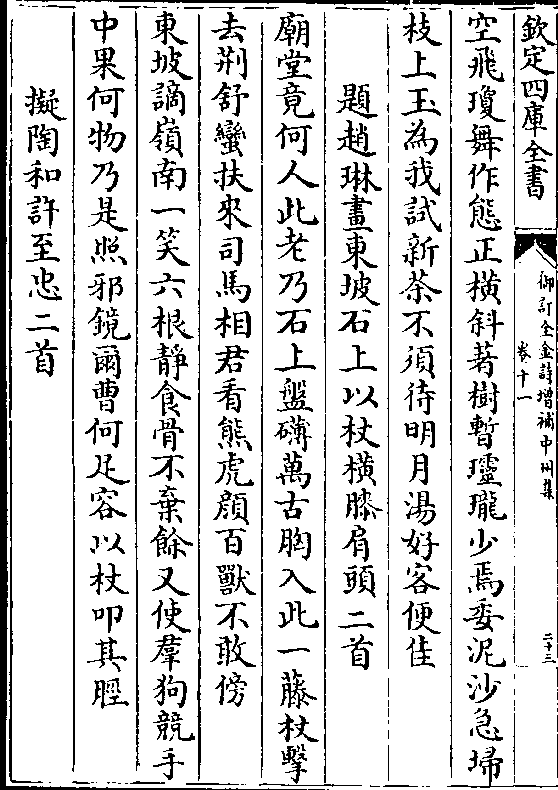 欽定四庫全書
御訂全金詩增補中州集
卷十一
二十三
空飛瓊舞作態正橫斜著樹暫瓏瓏少焉委泥沙急埽
枝上玉為我試新茶不須待明月湯好客便佳
題趙琳畫東坡石上以杖橫膝肩頭二首
廟堂竟何人此老乃石上盤礴萬古胸入此一藤杖擊
去荆舒蠻扶來司馬相君看熊虎顔百獸不敢傍
東坡謫嶺南一笑六根靜食骨不棄餘又使羣狗競手
中果何物乃是照邪鏡爾曹何足容以杖叩其脛
擬陶和許至忠二首